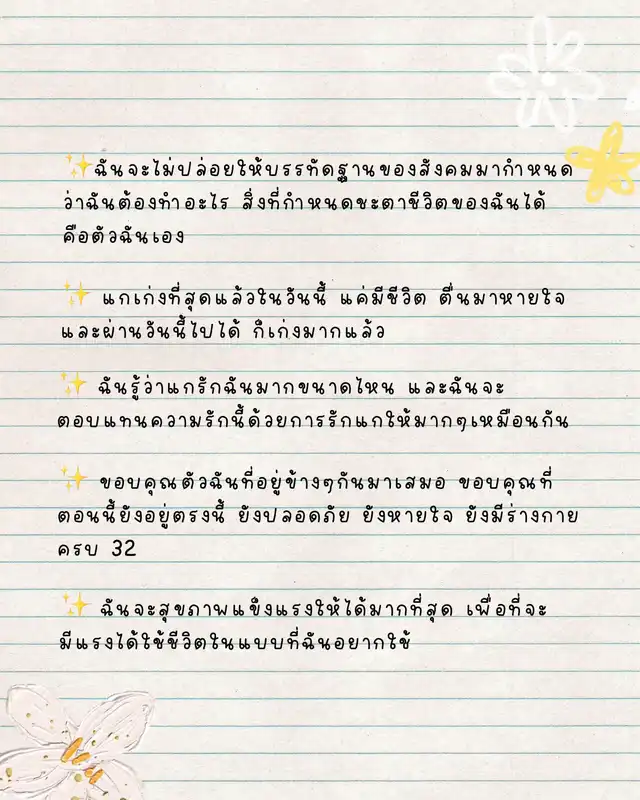 ✨ฉันจะไม่ปล่อยให้บรรทัดฐานของสังคมมากำหนด
ว่าฉันต้องทำอะไร สิ่งที่กำหนดชะตาชีวิตของฉันได้
คือตัวฉันเอง
✨ แกเก่งที่สุดแล้วในวันนี้ แค่มีชีวิต ตื่นมาหายใจ
และผ่านวันนี้ไปได้ ก็เก่งมากแล้ว
✨ ฉันรู้ว่าแกรักฉันมากขนาดไหน และฉันจะ
ตอบแทนความรักนี้ด้วยการรักแกให้มากๆเหมือนกัน
✨ ขอบคุณตัวฉันที่อยู่ข้างๆกันมาเสมอ ขอบคุณที่
ตอนนี้ยังอยู่ตรงนี้ ยังปลอดภัย ยังหายใจ ยังมีร่างกาย
ครบ 32
✨ ฉันจะสุขภาพแข็งแรงให้ได้มากที่สุด เพื่อที่จะ
มีแรงได้ใช้ชีวิตในแบบที่ฉันอยากใช้